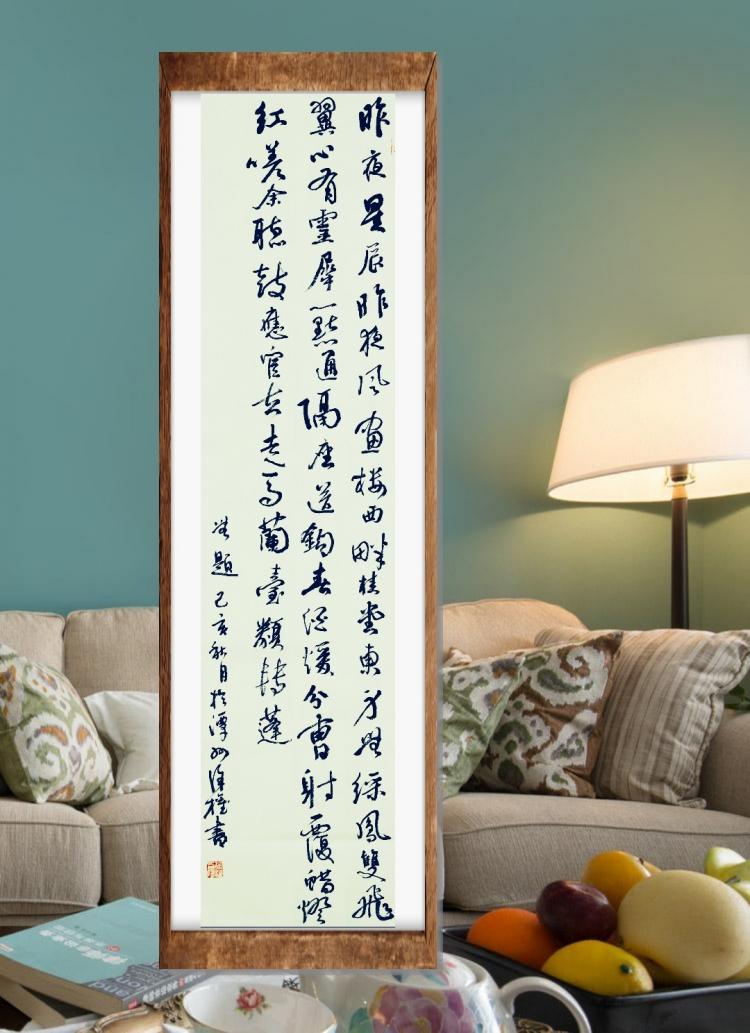 昨夜星辰昨夜風畫楼西畔桂堂東身無綵鳳雙飛
翼心有靈犀一點通隔座送鈎春酒暖分曹射覆蜡燈
紅嗟余聽鼓應官去走馬蘭臺類轉蓬
無題 己亥秋月於潭州徐書